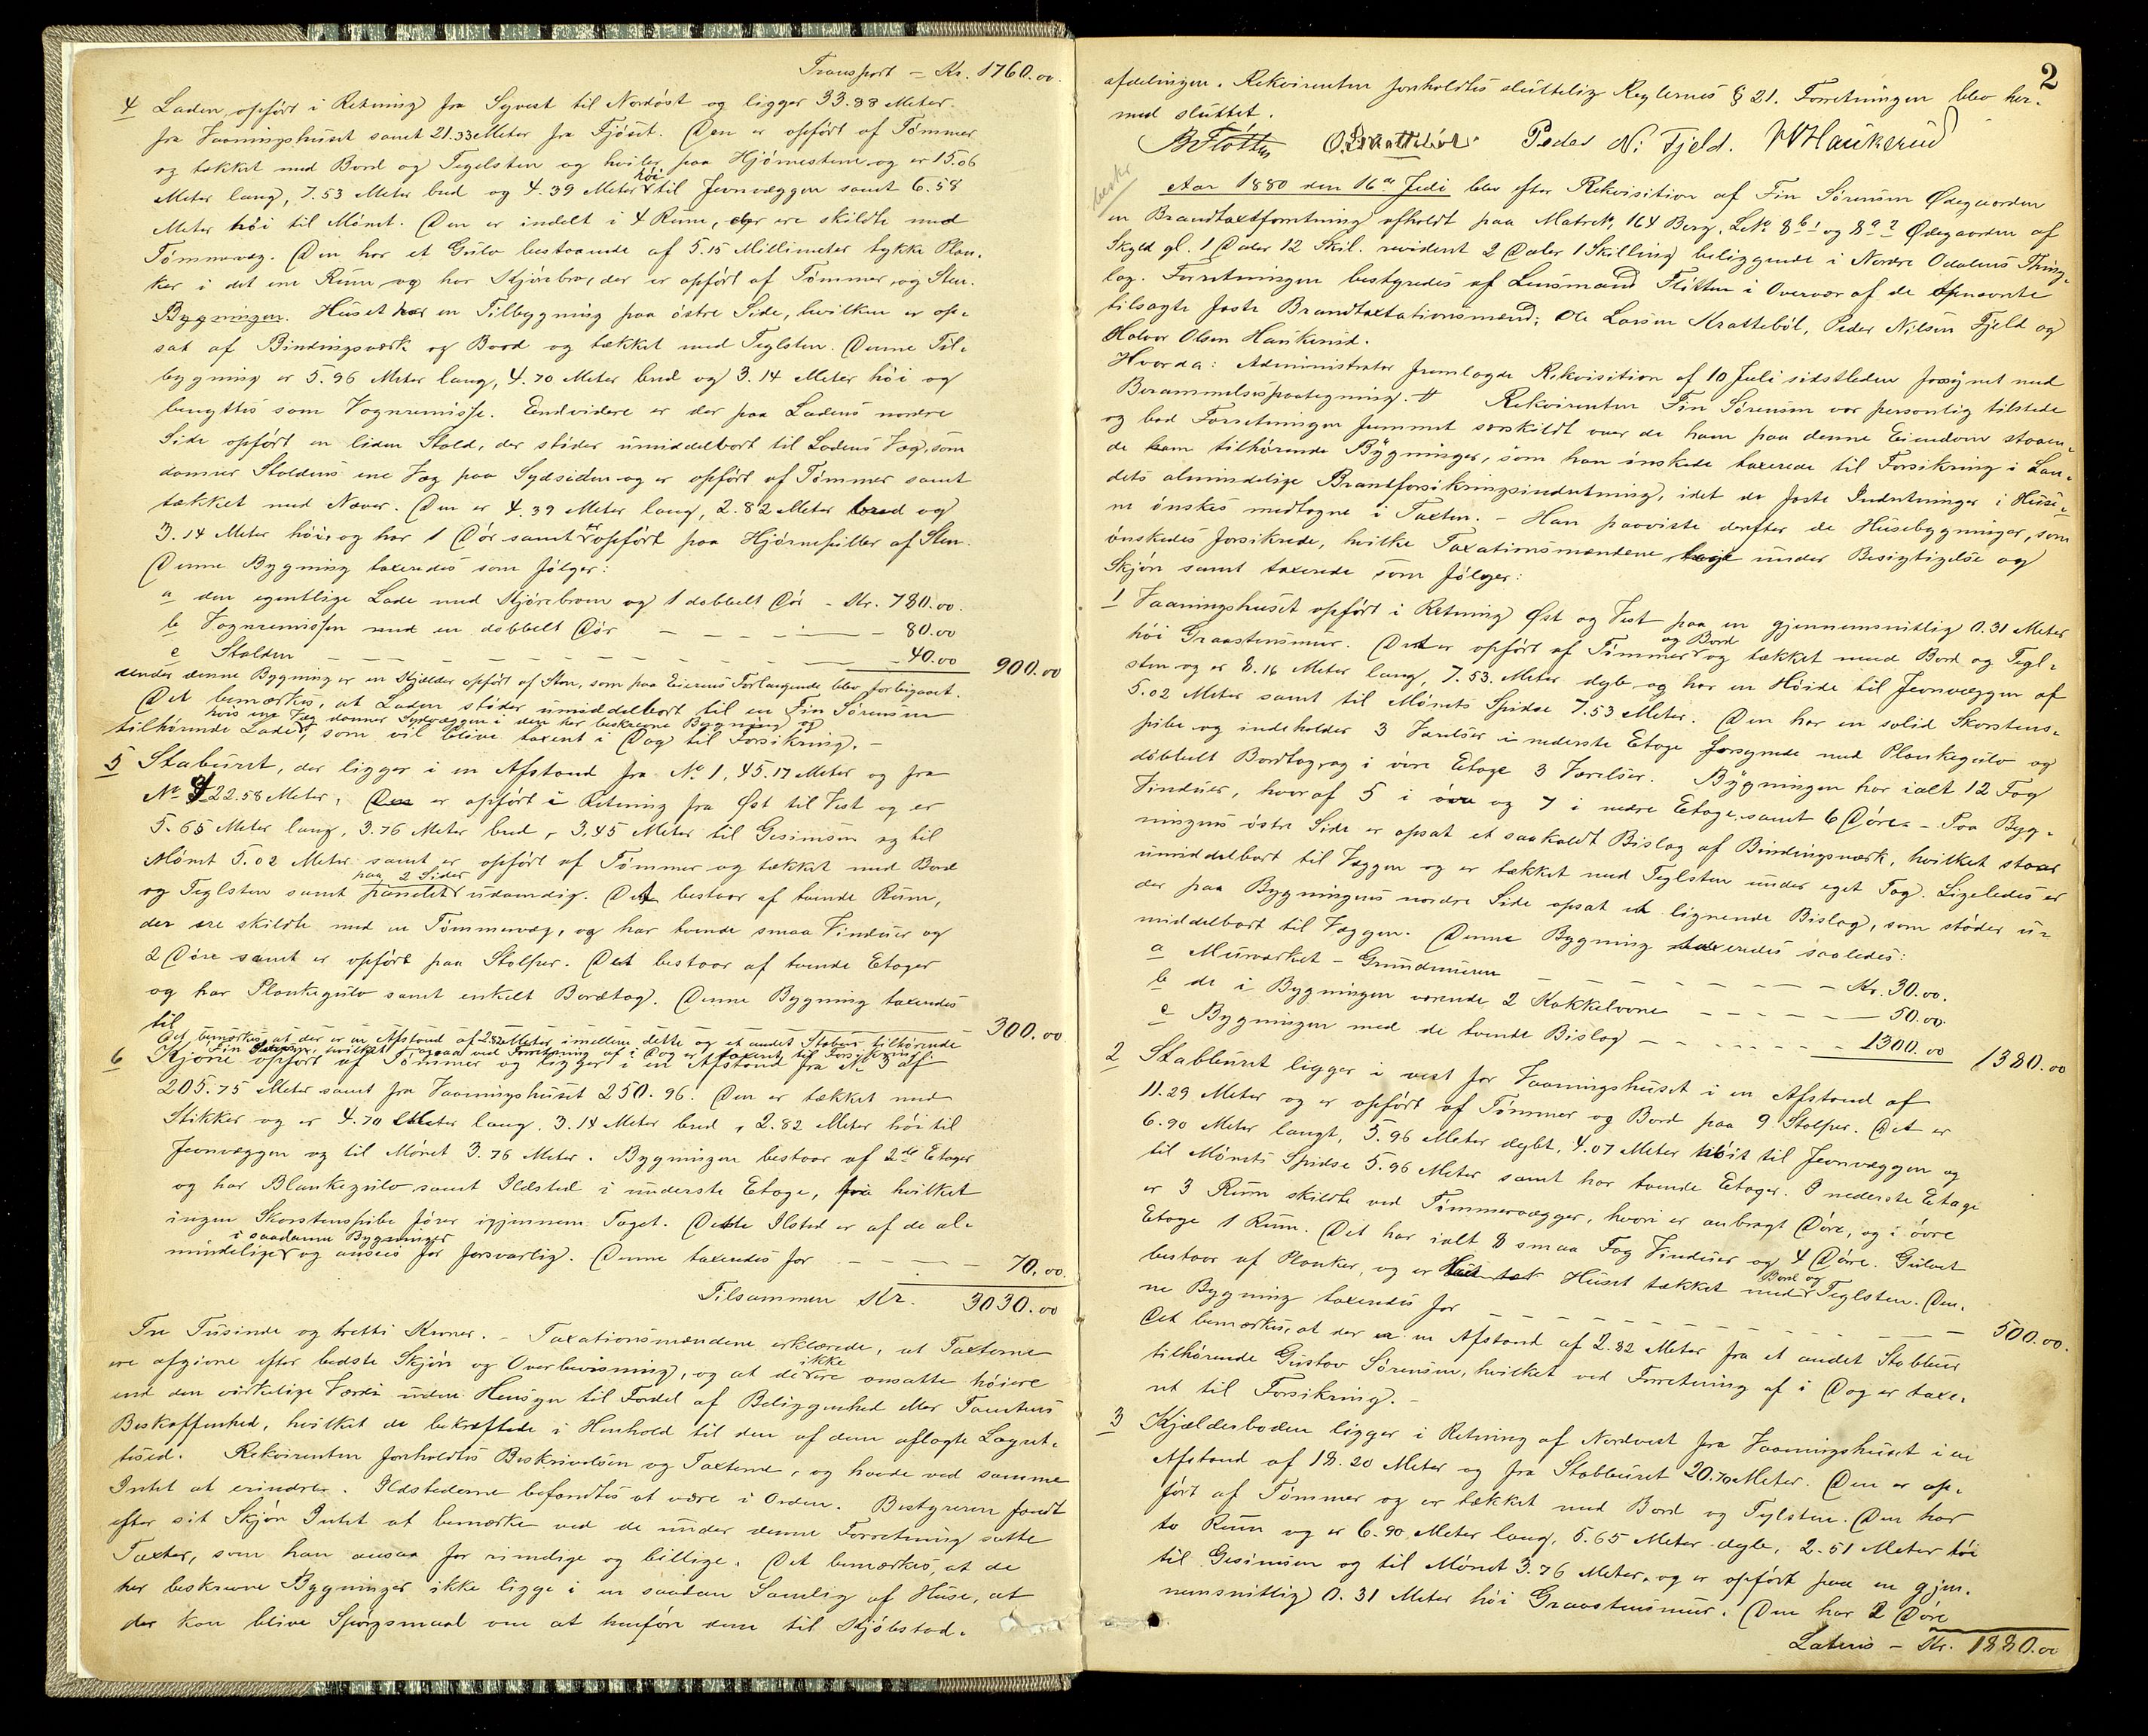 Transport – Kr. 1760.00.
4 Laden, opført i Retning fra Sydvest til Nordøst og ligger 33.88 Meter
fra Vaaningshuset samt 21.33 Meter fra Fjøset. Den er opført af Tømmer
og tækket med Bord og Tegelsten og hviler paa Hjørnestene og er 15.06
Meter lang, 7.53 Meter bred og 4.39 Meter høi til Jevnvæggen samt 6.58
Meter høi til Mønet. Den er indelt i 4 Rum, der ere skildte med
Tømmervæg. Den har et Gulv bestaaende af 5.15 Millimeter tykke Plan-
ker i det ene Rum og har Kjørebro, der er opført af Tømmer og Sten.
Bygningen. Huset har en Tilbygning paa østre Side, hvilken er op-
sat af Bindingsværk og Bord og tækket med Teglsten. Denne Til-
bygning er 5.96 Meter lang, 4.70 Meter bred og 3.14 Meter høi og
benyttes som Vognremisse. Endvidere er der paa Ladens nordre
Side opført en liden Stald, der støder umiddelbart til Ladens Væg, som
danner Staldens ene Væg paa Sydsiden og er opført af Tømmer samt
tækket med Næver. Den er 4.39 Meter lang, 2.82 Meter bred og
3.14 Meter høi, og har 1 Dør samt er opført paa Hjørnepiller af Sten.
Denne Bygning taxeredes som følger:
a den egentlige Lade med Kjørebroen og 1 dobbelt Dør – Kr. 780.00.
b Vognremissen med en dobbelt Dør – – – – 80.00
c Stalden – – – – – 40.00 900.00
under denne Bygning er en Kjælder opført af Sten, som paa Eierens Forlangende blev forbigaaet.
Det bemærkes, at Laden støder umiddelbart til en Fin Sørensen
hvis ene Væg danner Sydvæggen i den her beskrevne Bygning og
tilhørende Lade, som vil blive taxeret i Dag til Forsikring. –
5 Staburet, der ligger i en Afstand fra No 1, 45.17 Meter og fra
No 4 22.58 Meter, er opført i Retning fra Øst til Vest og er
5.65 Meter lang, 3.76 Meter bred, 3.45 Meter til Gesimsen og til
Mønet 5.02 Meter samt er opført af Tømmer og tækket med Bord
paa 2 Sider
og Teglsten samt panelet udvendig. Det bestaar af tvende Rum,
der ere skildte med en Tømmervæg, og har tvende smaa Vinduer og
2 Døre samt er opført paa Stolper. Det bestaar af tvende Etager
og har Plankegulv samt enkelt Bordtag. Denne Bygning taxeredes
til – – – – 300.00
Det bemærkes, at der er en Afstand af 2.82 Meter imellem dette og et andet Stabur tilhørende
Fin Sørensen, hvilket ved Forretning af i Dag er taxeret til Forsikring
6 Kjone opført af Tømmer og ligger i en Afstand fra No 3 af
205.75 Meter samt fra Vaaningshuset 250.96. Den er tækket med
Stikker og er 4.70 Meter lang, 3.14 Meter bred, 2.82 Meter høi til
Jevnvæggen og til Mønet 3.76 Meter. Bygningen bestaar af 2de Etager
og har Blankegulv samt Ildsted i underste Etage, fra hvilket
ingen Skorstenspibe fører igjennem Taget. Dette Ilsted er af de al-
i saadanne Bygninger
mindelige og ansees for forsvarlig. Denne taxeredes for – – – 70.00.
Tilsammen Kr. 3030.00
Tre Tusinde og tretti Kroner. – Taxationsmændene erklærede, at Taxterne
ere afgivne efter bedste Skjøn og Overbevisning, og at de ikke ere ansatte høiere
end den virkelige Værdi uden Hensyn til Fordel af Beliggenhed eller Tomtens
Beskaffenhed, hvilket de bekræftede i Henhold til den af dem aflagte Lagret-
tesed. Rekvirenten forholdtes Beskrivelsen og Taxterne, og havde ved samme
Intet at erindre. Ildstederne befandtes at være i Orden. Bestyreren fandt
efter sit Skjøn Intet at bemærke ved de under denne Forretning satte
Taxter, som han ansaa for rimelige og billige. Det bemærkes, at de
her beskrevne Bygninger ikke ligge i en saadan Samlig af Huse, at
der kan blive Spørgsmaal om at henføre dem til Kjøbstad-
2
afdelingen. Rekvirenten forholdtes sluttelig Reglernes § 21. Forretningen blev her-
med sluttet.
B Fløtten O. L. Krattebøl Peder N. Fjeld. H Haukerud
Aar 1880 den 16de Juli blev efter Rekvisition af Fin Sørensen Ødegaarden
en Brandtaxtforretning afholdt paa Matrek. 164 Berg, LNo 8 b 1 og 8 a 2 Ødegaarden af
Skyld gl. 1 Daler 12 Skil. revideret 2 Daler 1 Skilling beliggende i Nordre Odalens Thing-
lag. Forretningen bestyredes af Lensmand Fløtten i Overvær af de opnævnte
tilsagte faste Brandtaxtationsmænd: Ole Larsen Krattebøl, Peder Nilsen Fjeld og
Halvor Olsen Haukerud.
Hvorda: Administrator fremlagde Rekvisition af 10 Juli sidstleden forsynet med
Berammelsespaategning. Rekvirenten Fin Sørensen var personlig tilstede
og bad Forretningen fremmet særskildt over de ham paa denne Eiendom staaen-
de ham tilhørende Bygninger, som han ønskede taxerede til Forsikring i Lan-
dets almindelige Brandforsikringsindretning, idet de faste Indretninger i Huse-
ne ønskes medtagne i Taxten. – Han paaviste derefter de Husebygninger, som
ønskedes forsikrede, hvilke Taxationsmændene toge under Besigtigelse og
Skjøn samt taxerede som følger:
1 Vaaningshuset opført i Retning Øst og Vest paa en gjennemsnitlig 0.31 Meter
høi Graastensmur. Det er opført af Tømmer og Bord og tækket med Bord og Tegl-
sten og er 8.16 Meter lang, 7.53 Meter dyb og har en Høide til Jevnvæggen af
5.02 Meter samt til Mønets Spidse 7.53 Meter. Den har en solid Skorstens-
pibe og indeholder 3 Værelser i nederste Etage forsynede med Plankegulv og
dobbelt Bordtag og i øvre Etage 3 Værelser. Bygningen har ialt 12 Fag
Vinduer, hvoraf 5 i øvre og 7 i nedre Etage samt 6 Døre. – Paa Byg-
ningens østre Side er opsat et saakaldt Bislag af Bindingsværk, hvilket staar
umiddelbart til Væggen og er tækket med Teglsten under eget Tag. Ligeledes er
der paa Bygningens nordre Side opsat et lignende Bislag, som støder u-
middelbart til Væggen. Denne Bygning taxeredes saaledes:
a Murværket – Grundmuren – – – – Kr. 30.00.
b de i Bygningen værende 2 Kakkelovne – – – – 50.00.
c Bygningen med de tvende Bislag – – – – 1300.00 1380.00
2 Stabburet ligger i vest for Vaaningshuset i en Afstand af
11.29 Meter og er opført af Tømmer og Bord paa 9 Stolper. Det er
6.90 Meter langt, 5.96 Meter dybt, 4.07 Meter høit til Jevnvæggen og
til Mønets Spidse 5.96 Meter samt har tvende Etager. I nederste Etage
er 3 Rum skildte ved Tømmervægger, hvori er anbragt Døre, og i øvre
Etage 1 Rum. Det har ialt 8 smaa Fag Vinduer og 4 Døre. Gulvet
bestaar af Planker, og er Huset tækket med Bord og Teglsten. Den-
ne Bygning taxeredes for – – – – 500.00.
Det bemærkes, at der er en Afstand af 2.82 Meter fra et andet Stabbur
tilhørende Gustav Sørensen, hvilket ved Forretning af i Dag er taxe-
ret til Forsikring. –
3 Kjælderboden ligger i Retning af Nordvest fra Vaaningshuset i en
Afstand af 18.20 Meter og fra Stabburet 20.70 Meter. Den er op-
ført af Tømmer og er tækket med Bord og Tegl​sten. Den har
to Rum og er 6.90 Meter lang, 5.65 Meter dyb, 2.51 Meter høi
til Gesimsen og til Mønet 3.76 Meter, og er opført paa en gjen-
nemsnitlig 0.31 Meter høi Graastensmur. Den har 2 Døre
Lateris – Kr. 1880.00